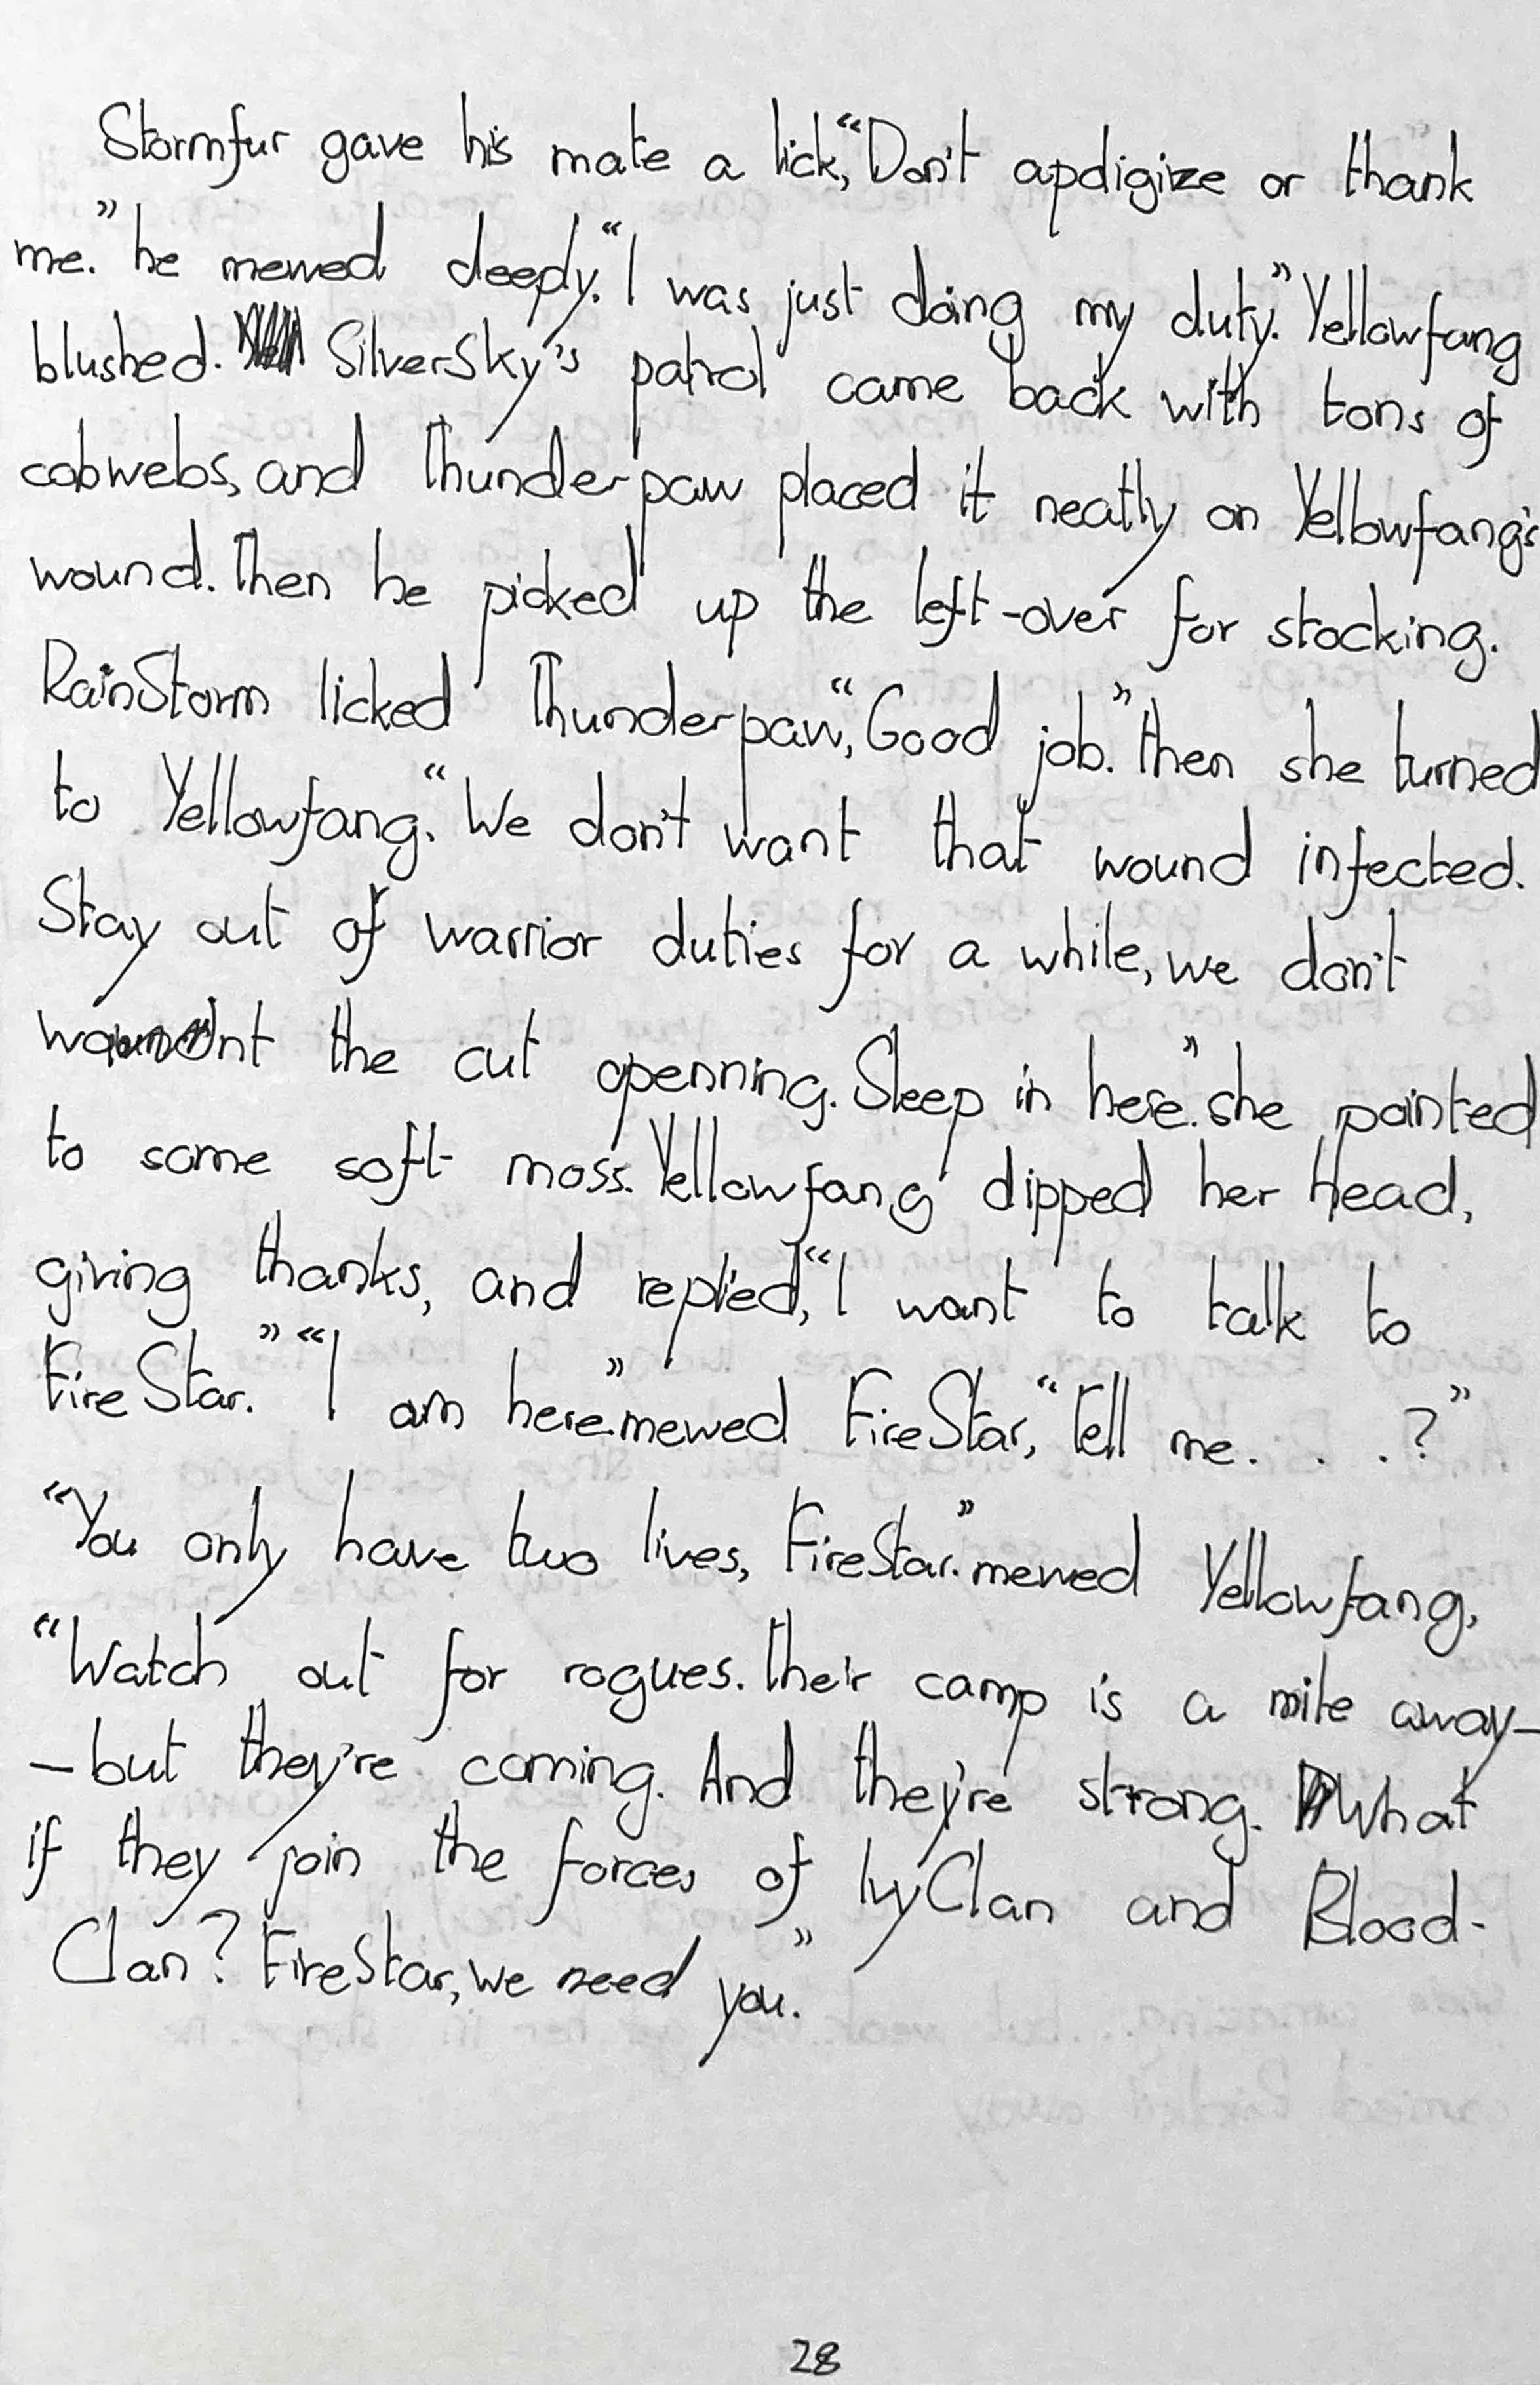 Stormfur gave his mate a lick, “Don't apoligize or thank
me.” he mewed deeply. “I was just doing my duty.” Yellowfang
blushed. SilverSky's patrol came back with tons of
cobwebs, and Thunderpaw placed it neatly on Yellowfang's
wound. Then he picked up the left-over for stocking.
RainStorm licked Thunderpaw, “Good job.” then she turned
to Yellowfang. “We don't want that wound infected.
Stay out of warrior duties for a while, we don't
want the cut openning. Sleep in here.” she pointed
to some soft moss. Yellowfang dipped her head,
giving thanks, and replied, “I want to talk to
FireStar.” “I am here.” mewed FireStar, “Tell me. . . ?”
“You only have two lives, FireStar.” mewed Yellowfang,
“Watch out for rogues. Their camp is a mile away—
—but they're coming. And they're strong. What
if they join the forces of IvyClan and Blood-
Clan? FireStar, we need you.”
28